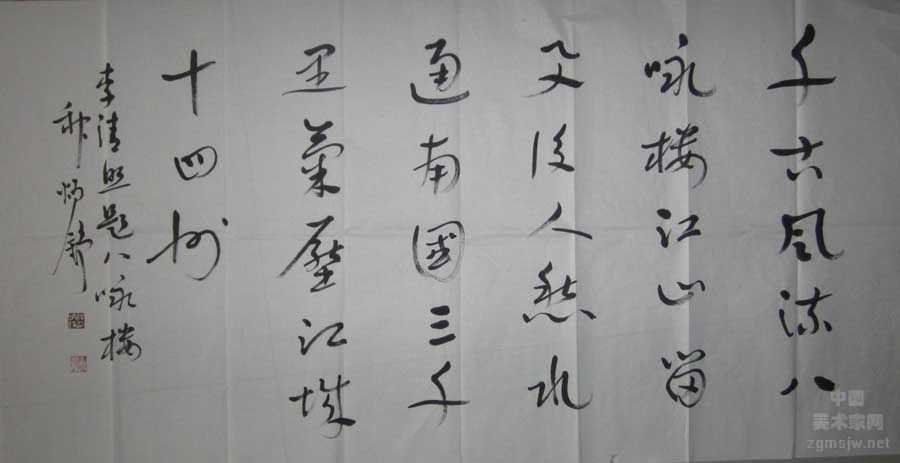 千古風流八
咏楼江山留
与後人愁水
通南國三千
里氣壓江城
十四州
李清照題八咏楼
中国
美术家网
zgmsjw.net